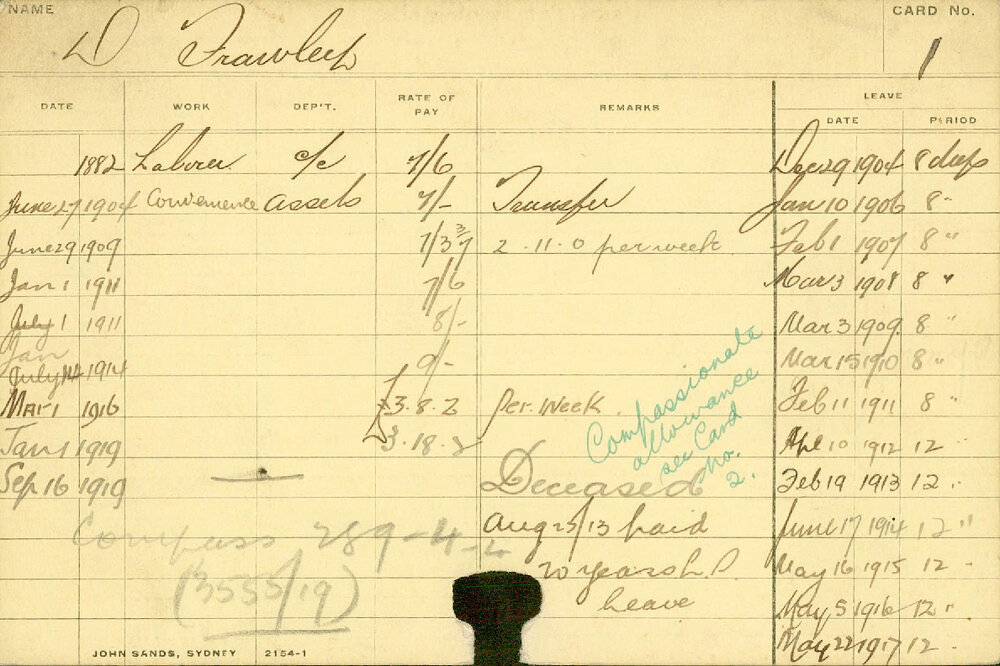 NAME
CARD No.
D Frawley
1
DATE WORK DEP'T. RATE OF PAY REMARKS LEAVE
DATE PERIOD
1882 Laborer c/c 7/6 Dec 29 1904 8 days
June 27 1904 Convenience Assets 7/- Transfer Jan 10 1906 8 "
June 29 1909 7/3 2 . 11 . 0 per week Feb 1 1907 8 "
Jan 1 1911 7/6 Mar 3 1908 8 "
July 1 1911 8/- Mar 3 1909 8 "
Jan
July 14 1914 9/- Mar 15 1910 8 "
Mar 1 1916 £3.8.2 per week Feb 11 1911 8 "
Jan 1 1919 3.18.8 Apl 10 1912 12 "
Sep 16 1919 Deceased Feb 19 1913 12 "
Compassionate
allowance
see Card
No.
2.
Aug 25/13 paid June 17 1914 12 "
Compass 289-4-2
20 years L.S May 16 1915 12 -
(3535/19)
leave May 5 1916 12 "
May 22 1917 12 .
JOHN SANDS, SYDNEY 2154-1